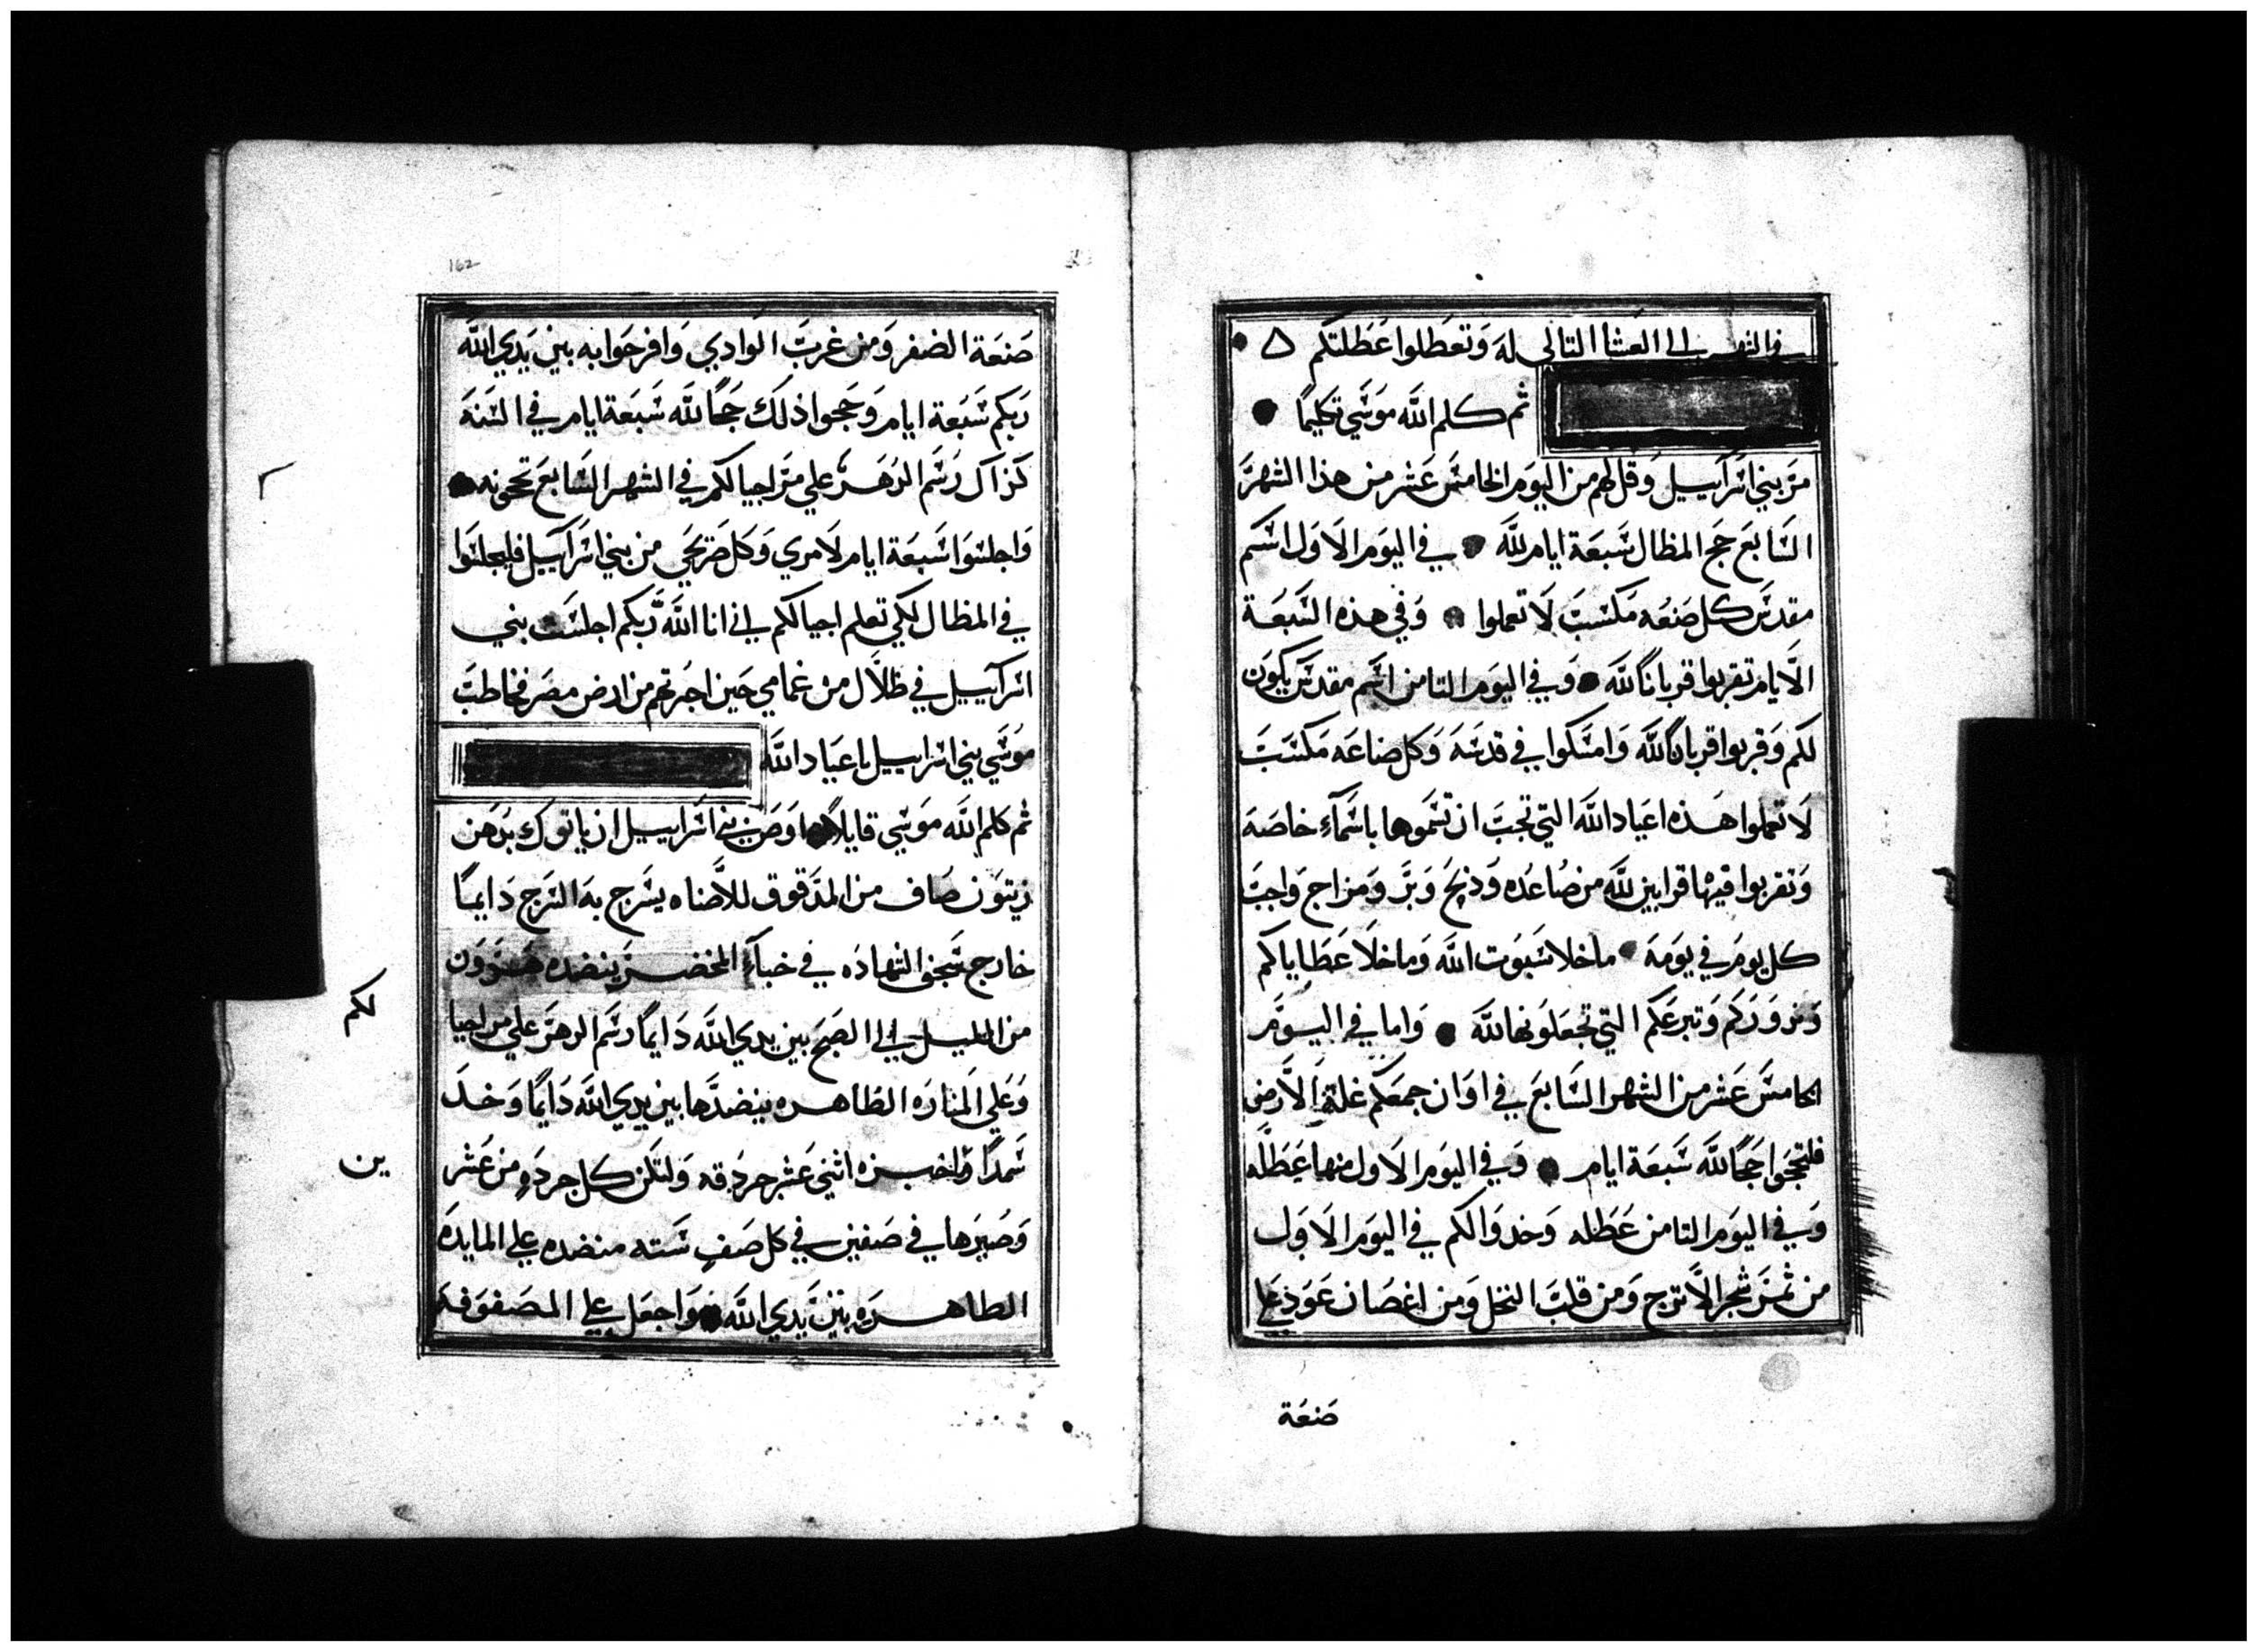 في الشهر الي العشا التالي له وتعطلوا عطلتكم
ثم كلم الله موسي تكليما
مر بني اسرآييل وقل لهم من اليوم الخامس عشر من هذا الشهر
السابع حج المظال سبعة ايام لله في اليوم الاول اسم
مقدس كل صنعه مكسب لا تعملوا وفي هذه السبعة
الايام تقربوا قربانا لله وفي اليوم الثامن اسم مقدس يكون
لكم وقربوا قربانا لله وامسكوا في قدسه وكل صناعه مكسب
لا تعملوا هذه اعياد الله التي تجب ان تسموها باسمآء خاصه
وتقربوا فيها قرابين لله من صاعده وذبح وبر ومزاج واجب
كل يوم في يومه ماخلا سبوت الله وماخلا عطاياكم
ونزوركم وتبرعكم التي تجعلونها لله واما في اليوم
الخامس عشر من الشهر السابع في اوان جمعكم غلة الارض
فلتحجوا حجا لله سبعة ايام وفي اليوم الاول منها عطله
وفي اليوم الثامن عطله وخدوا لكم في اليوم الاول
من ثمر شجر الاترج ومن قلب النخل ومن اغصان عوذ علي
صنعة
162
صنعة الضفر ومن غرب الوادي وافرحوا به بين يدي الله
ربكم سبعة ايام وحجوا ذلك حجا لله سبعة ايام في السنه
كذاك رسم الدهر علي مر اجيالكم في الشهر السابع تحجونه
واجلسوا سبعة ايام لامري وكل صريحي من بني اسرآييل فليجلسوا
في المظال لكي تعلم اجيالكم اني انا الله ربكم اجلست بني
اسرآييل في ظلال من غمامي حين اخرجتهم من ارض مصر فخاطب
موسي بني اسراييل باعياد الله
ثم كلم الله موسي قايلا اوص بني اسراييل ان ياتوك بدهن
زيتون صاف من المدقوق للاضاه يسرج به السرج دايما
خارج سجف الشهاده في خبآء المحضر ينضده هرون
من الليل الي الصبح بين يدي الله دايما رسم الدهر علي مر اجيا
لكم
وعلي المناره الطاهره ينضدها بين يدي الله دايما وخد
سمدا واخبزه اثني عشر جردقه ولتكن كل جردقه من عشر
ين
وصيرها في صفين في كل صف سته منضده علي المايده
الطاهره بين يدي الله واجعل علي المصفوفه